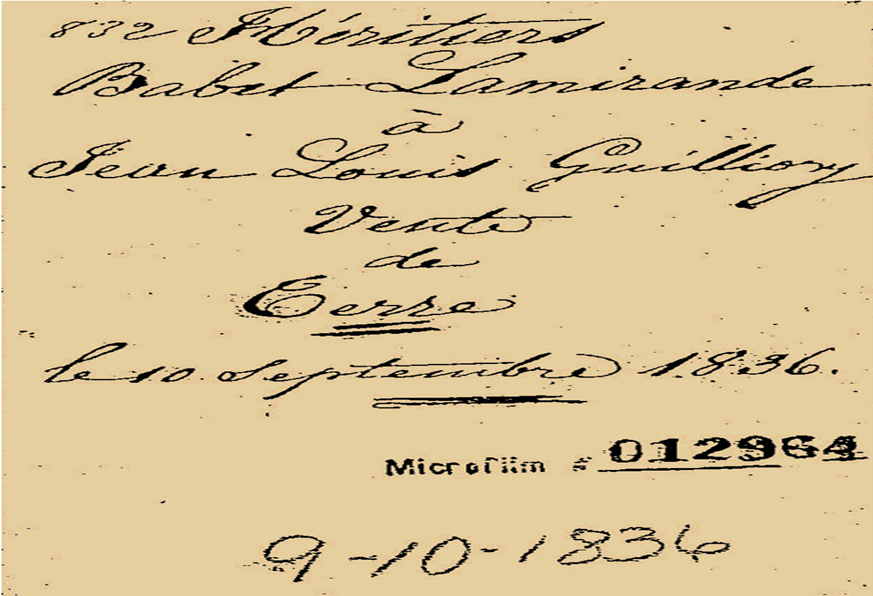 832 Héritiers
Babet Lamirande
à
Jean Louis Guilliory
Vente
de
Terre
le 10 Septembre 1836.
Microfilm # 012964
9-10-1836